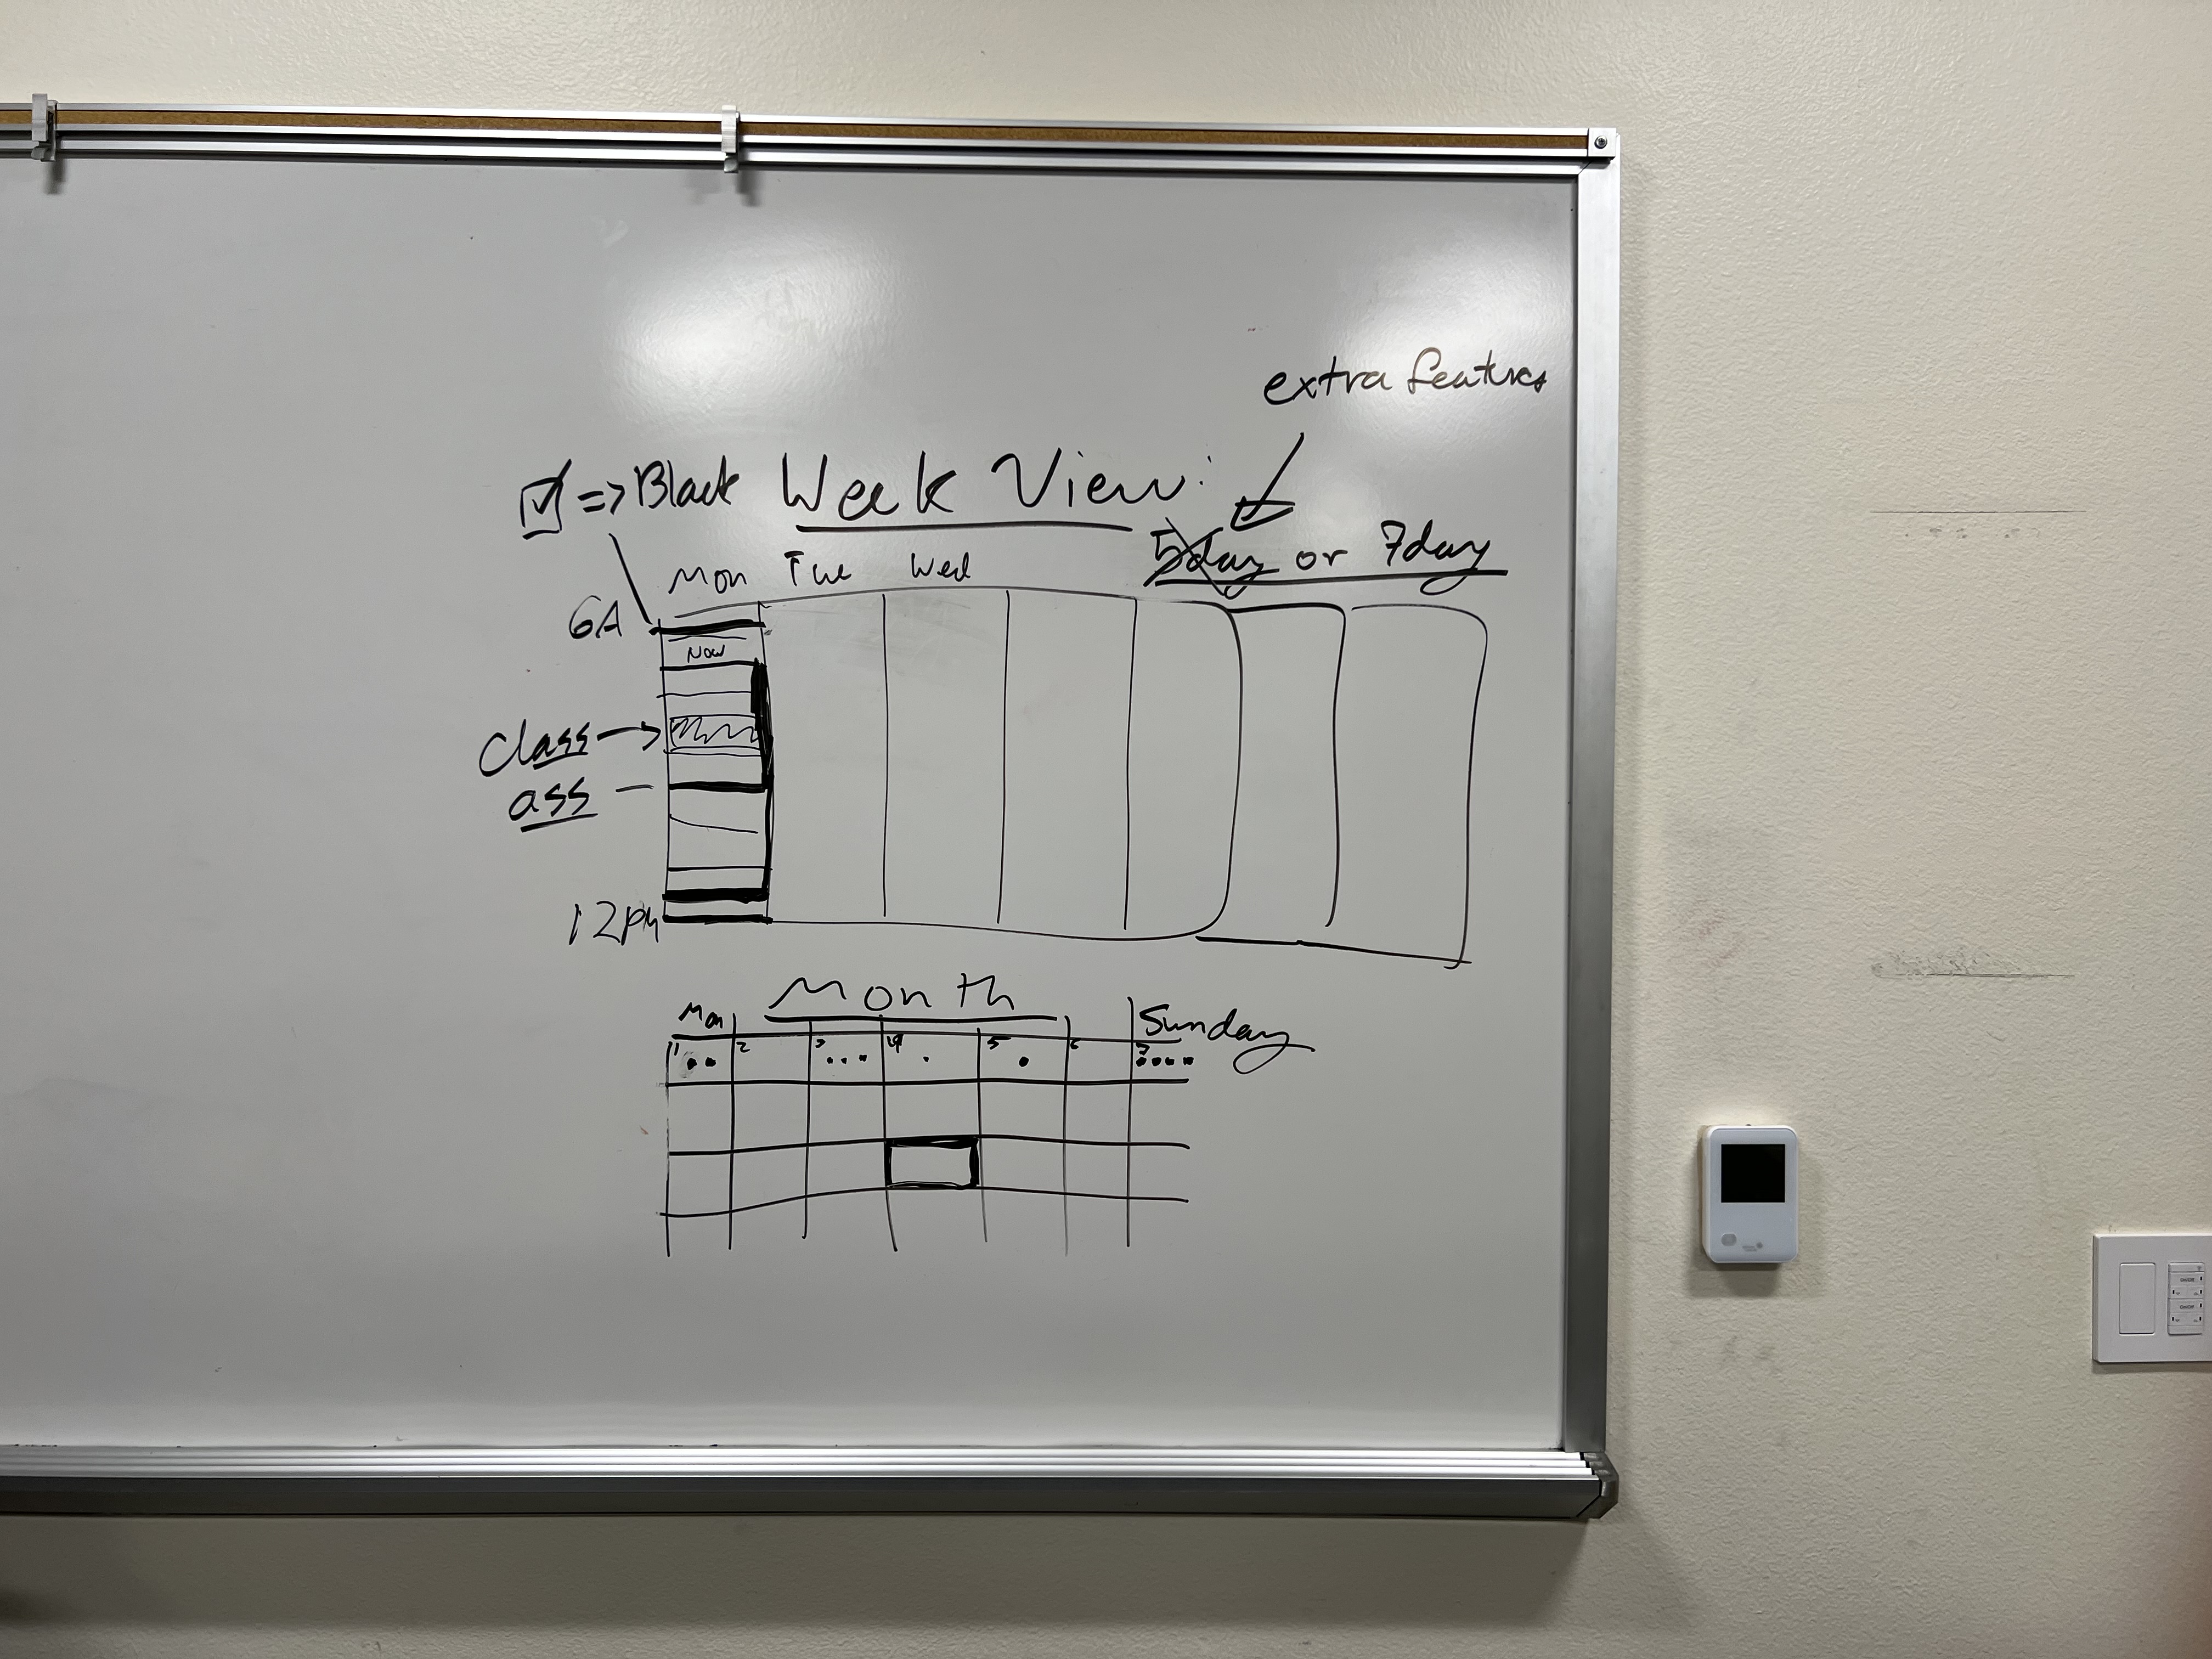 extra features
☑ => Black Week View:
5day or 7day
Mon Tue Wed
6A
Now
class
ass
12pm
Month
Mon Sunday
1 2 3 4 5 6 7